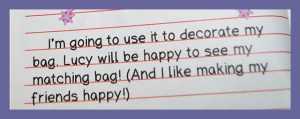 I'm going to use it to decorate my
bag. Lucy will be happy to see my
matching bag! (And I like making my
friends happy!)